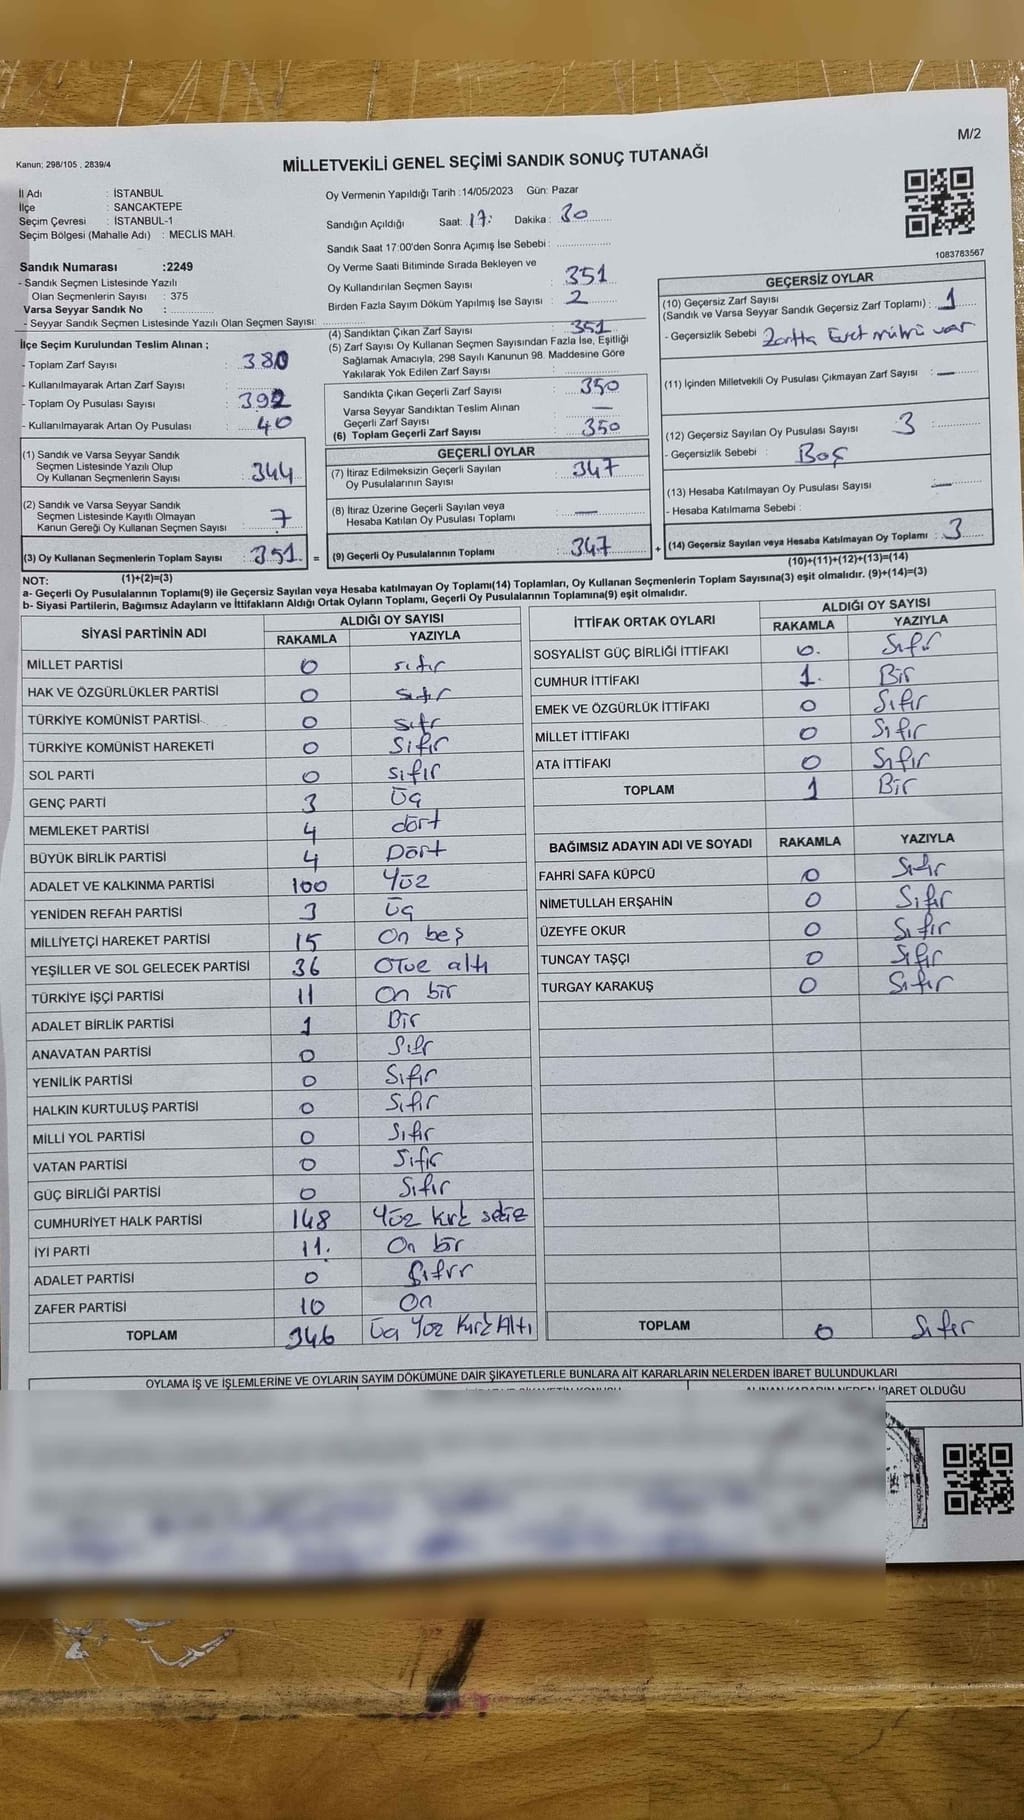 M/2
Kanun; 298/105 . 2839/4
MİLLETVEKİLİ GENEL SEÇİMİ SANDIK SONUÇ TUTANAĞI
İl Adı : İSTANBUL
İlçe : SANCAKTEPE
Seçim Çevresi : İSTANBUL-1
Seçim Bölgesi (Mahalle Adı) : MECLİS MAH.
Sandık Numarası :2249
- Sandık Seçmen Listesinde Yazılı
Olan Seçmenlerin Sayısı : 375
Varsa Seyyar Sandık No :
- Seyyar Sandık Seçmen Listesinde Yazılı Olan Seçmen Sayısı:
İlçe Seçim Kurulundan Teslim Alınan ;
- Toplam Zarf Sayısı : 380
- Kullanılmayarak Artan Zarf Sayısı :
- Toplam Oy Pusulası Sayısı : 392
- Kullanılmayarak Artan Oy Pusulası : 40
(1) Sandık ve Varsa Seyyar Sandık
Seçmen Listesinde Yazılı Olup
Oy Kullanan Seçmenlerin Sayısı : 344
(2) Sandık ve Varsa Seyyar Sandık
Seçmen Listesinde Kayıtlı Olmayan
Kanun Gereği Oy Kullanan Seçmen Sayısı : 7
(3) Oy Kullanan Seçmenlerin Toplam Sayısı : 351 =
(1)+(2)=(3)
Oy Vermenin Yapıldığı Tarih :14/05/2023 Gün: Pazar
Sandığın Açıldığı Saat: 17: Dakika : 30
Sandık Saat 17:00'den Sonra Açımış İse Sebebi :
Oy Verme Saati Bitiminde Sırada Bekleyen ve
Oy Kullandırılan Seçmen Sayısı : 351
Birden Fazla Sayım Döküm Yapılmış İse Sayısı : 2
(4) Sandıktan Çıkan Zarf Sayısı : 351
(5) Zarf Sayısı Oy Kullanan Seçmen Sayısından Fazla İse, Eşitliği
Sağlamak Amacıyla, 298 Sayılı Kanunun 98. Maddesine Göre
Yakılarak Yok Edilen Zarf Sayısı :
Sandıkta Çıkan Geçerli Zarf Sayısı : 350
Varsa Seyyar Sandıktan Teslim Alınan
Geçerli Zarf Sayısı : —
(6) Toplam Geçerli Zarf Sayısı : 350
GEÇERLİ OYLAR
(7) İtiraz Edilmeksizin Geçerli Sayılan
Oy Pusulalarının Sayısı : 347
(8) İtiraz Üzerine Geçerli Sayılan veya
Hesaba Katılan Oy Pusulası Toplamı : —
(9) Geçerli Oy Pusulalarının Toplamı : 347 +
1083783567
GEÇERSİZ OYLAR
(10) Geçersiz Zarf Sayısı
(Sandık ve Varsa Seyyar Sandık Geçersiz Zarf Toplamı) : 1
- Geçersizlik Sebebi : Zarfta Evet mührü var
(11) İçinden Milletvekili Oy Pusulası Çıkmayan Zarf Sayısı : —
(12) Geçersiz Sayılan Oy Pusulası Sayısı 3 :
- Geçersizlik Sebebi : Boş
(13) Hesaba Katılmayan Oy Pusulası Sayısı —
- Hesaba Katılmama Sebebi :
(14) Geçersiz Sayılan veya Hesaba Katılmayan Oy Toplamı : 3
(10)+(11)+(12)+(13)=(14)
NOT:
a- Geçerli Oy Pusulalarının Toplamı(9) ile Geçersiz Sayılan veya Hesaba katılmayan Oy Toplamı(14) Toplamları, Oy Kullanan Seçmenlerin Toplam Sayısına(3) eşit olmalıdır. (9)+(14)=(3)
b- Siyasi Partilerin, Bağımsız Adayların ve İttifakların Aldığı Ortak Oyların Toplamı, Geçerli Oy Pusulalarının Toplamına(9) eşit olmalıdır.
SİYASİ PARTİNİN ADI ALDIĞI OY SAYISI
RAKAMLA YAZIYLA
MİLLET PARTİSİ 0 sıfır
HAK VE ÖZGÜRLÜKLER PARTİSİ 0 sıfır
TÜRKİYE KOMÜNİST PARTİSİ 0 sıfr
TÜRKİYE KOMÜNİST HAREKETİ 0 sıfır
SOL PARTİ 0 sıfır
GENÇ PARTİ 3 Üç
MEMLEKET PARTİSİ 4 dört
BÜYÜK BİRLİK PARTİSİ 4 Dört
ADALET VE KALKINMA PARTİSİ 100 Yüz
YENİDEN REFAH PARTİSİ 3 Üç
MİLLİYETÇİ HAREKET PARTİSİ 15 On beş
YEŞİLLER VE SOL GELECEK PARTİSİ 36 Otuz altı
TÜRKİYE İŞÇİ PARTİSİ 11 On bir
ADALET BİRLİK PARTİSİ 1 Bir
ANAVATAN PARTİSİ 0 Sıfr
YENİLİK PARTİSİ 0 Sıfır
HALKIN KURTULUŞ PARTİSİ 0 Sıfır
MİLLİ YOL PARTİSİ 0 Sıfır
VATAN PARTİSİ 0 Sıfır
GÜÇ BİRLİĞİ PARTİSİ 0 Sıfır
CUMHURİYET HALK PARTİSİ 148 Yüz kırk sekiz
İYİ PARTİ 11. On bir
ADALET PARTİSİ 0 Sıfır
ZAFER PARTİSİ 10 On
TOPLAM 346 Üç Yüz Kırk Altı
İTTİFAK ORTAK OYLARI ALDIĞI OY SAYISI
RAKAMLA YAZIYLA
SOSYALİST GÜÇ BİRLİĞİ İTTİFAKI 0. Sıfır
CUMHUR İTTİFAKI 1. Bir
EMEK VE ÖZGÜRLÜK İTTİFAKI 0 Sıfır
MİLLET İTTİFAKI 0 Sıfır
ATA İTTİFAKI 0 Sıfır
TOPLAM 1 Bir
BAĞIMSIZ ADAYIN ADI VE SOYADI RAKAMLA YAZIYLA
FAHRİ SAFA KÜPCÜ 0 Sıfır
NİMETULLAH ERŞAHİN 0 Sıfır
ÜZEYFE OKUR 0 Sıfır
TUNCAY TAŞÇI 0 Sıfır
TURGAY KARAKUŞ 0 Sıfır
TOPLAM 0 Sıfır
OYLAMA İŞ VE İŞLEMLERİNE VE OYLARIN SAYIM DÖKÜMÜNE DAİR ŞİKAYETLERLE BUNLARA AİT KARARLARIN NELERDEN İBARET BULUNDUKLARI
İBARET OLDUĞU